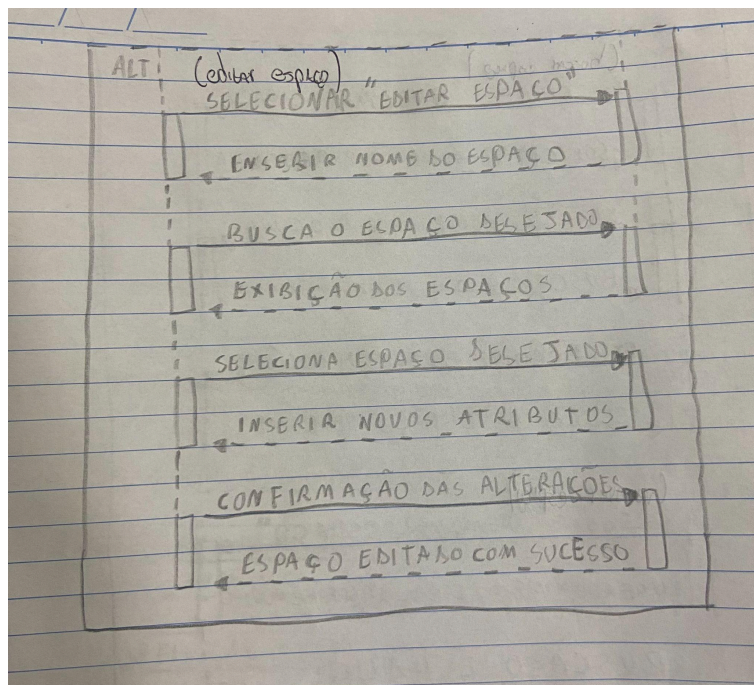 ALT (editar espaço)
SELECIONAR "EDITAR ESPAÇO"
ENSERIR NOME DO ESPAÇO
BUSCA O ESPAÇO DESEJADO
EXIBIÇÃO DOS ESPAÇOS
SELECIONA ESPAÇO DESEJADO
INSERIR NOVOS ATRIBUTOS
CONFIRMAÇÃO DAS ALTERAÇÕES
ESPAÇO EDITADO COM SUCESSO